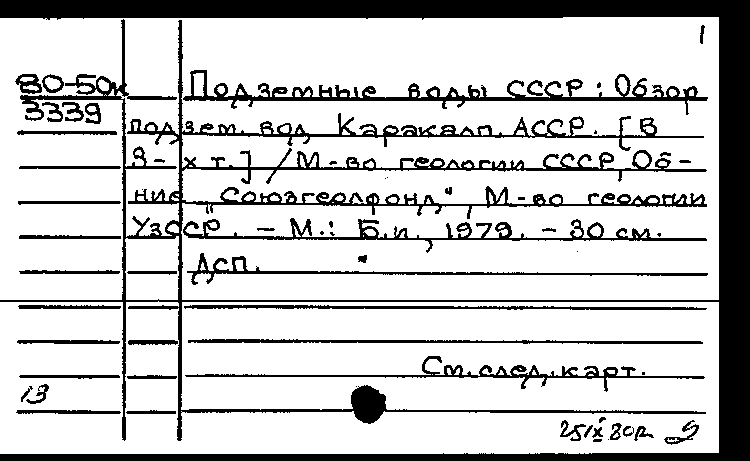 1
80-50к Подземные воды СССР: Обзор
3339
подзем. вод Каракалп. АССР. [В
3-х т.] / М-во геологии СССР, Об-
ние „Союзгеолфонд", М-во геологии
УзССР. - М.: Б.и., 1979. - 30 см.
ДСП.
См. след. карт.
13
25/IX 80г.